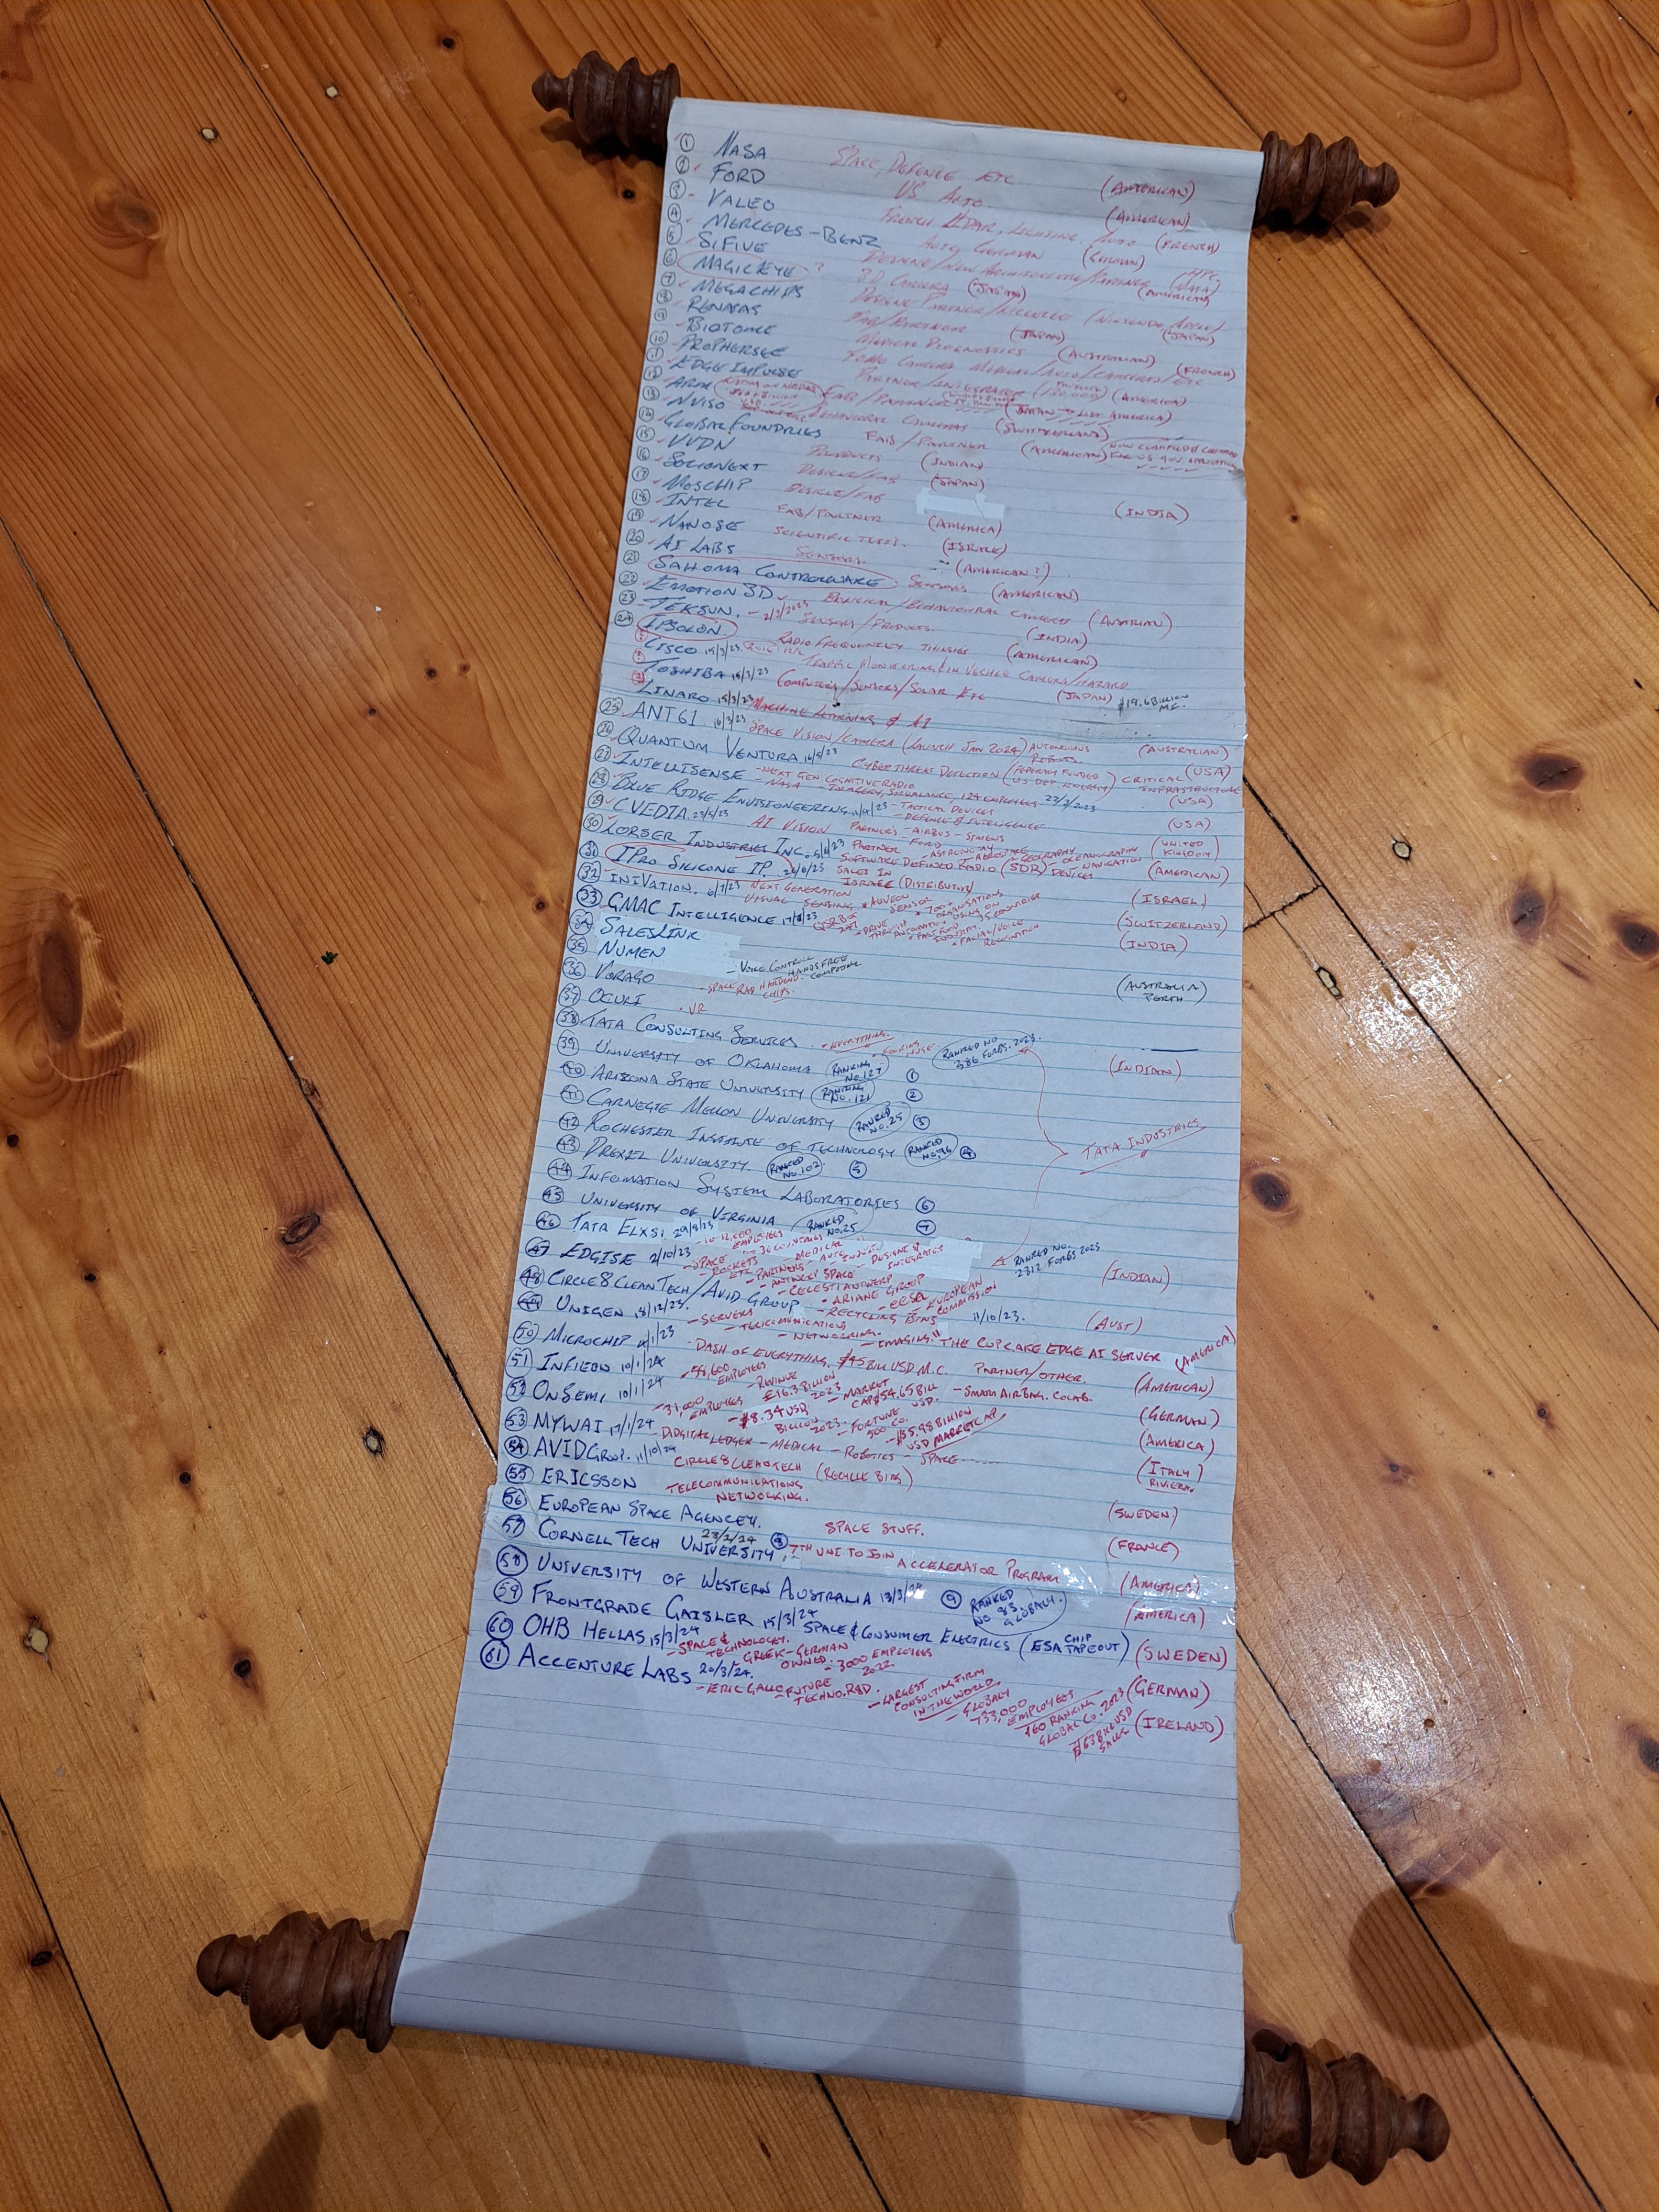 ① NASA SPACE, DEFENCE ETC (AMERICAN)
② FORD US AUTO (AMERICAN)
③ VALEO FRENCH LIDAR, LIGHTING, AUTO (FRENCH)
④ MERCEDES-BENZ AUTO GERMAN (GERMAN)
⑤ SIFIVE DESIGNE/NEW ARCHITECTURE/PARTNER (AMERICAN)
⑥ MAGICEYE? 3D CAMERA (JAPAN)
⑦ MEGACHIPS DESIGNE PARTNER/LICENCE (NINTENDO, APPLE) (JAPAN)
⑧ RENASAS FAB/PARTNER (JAPAN)
⑨ BIOTOME MEDICAL DIAGNOSTICS (AUSTRALIAN)
⑩ PROPHERSEE CAMERA MEDICAL/AUTO/CAMERAS/ETC (FRENCH)
⑪ EDGE IMPULSE PARTNER/INTEGRATOR (AMERICA)
⑫ ARM FAB/PARTNER
⑬ NVISO BEHAVIORAL CAMERAS (SWITZERLAND)
⑭ GLOBALFOUNDRIES FAB/PARTNER (AMERICAN)
⑮ VVDN PRODUCTS (INDIAN)
⑯ SOCIONEXT DESIGNE/FAB (JAPAN)
⑰ MOSCHIP DESIGNE/FAB (INDIA)
⑱ INTEL FAB/PARTNER (AMERICA)
⑲ NANOSE SCIENTIFIC TESTS. (ISRAEL)
⑳ AI LABS SENSORS. (AMERICAN?)
㉑ SAHOMA CONTROLWARE SENSORS (AMERICAN)
㉒ EMOTION 3D BIOLOGICAL/BEHAVIOURAL CAMERAS (AUSTRIAN)
㉓ TEKSUN. - 2/2/2023 SENSORS/PRODUCTS. (INDIA)
㉔ IPSOLON. RADIO FREQUENCY THINGIES (AMERICAN)
CISCO 15/3/23 TRAFFIC MONITERING/IN VECHLE CAMERS/HAZARD
TOSHIBA 15/3/23 COMPUTERS/SENSORS/SOLAR ETC (JAPAN) $19.6 BILLION M.C.
LINARO 15/3/23 MACHINE LEARNING & AI
㉕ ANT61. 16/3/23 SPACE VISION/CAMERA (LAUNCH JAN 2024) AUTONOMUS ROBOTS. (AUSTRALIAN)
㉖ QUANTUM VENTURA 16/5/23 CYBER THREAT DETECTION (FEDERALY FUNDED US DEP. ENERGY) CRITICAL INFRASTRUCTURE (USA)
㉗ INTELLISENSE - NEXT GEN COGNITIVE RADIO - NASA 124 EMPLOYEES (USA)
㉘ BLUE RIDGE ENVISIONEERING - TACTICAL DEVICES - DEFENCE & INTELLIGENCE (USA)
㉙ CVEDIA. 23/5/23 AI VISION PARTNER'S - AIRBUS - SIMENS - FORD (UNITED KINGDOM)
㉚ LORSER INDUSTRIES INC. PARTNER SOFTWARE DEFINED RADIO (SDR) DEVICES (AMERICAN)
㉛ IPRO SILICONE IP. SALES IN ISRAEL (DISTRIBUTER) (ISRAEL)
㉜ INIVATION. 6/7/23 NEXT GENERATION VISUAL SENSING (SWITZERLAND)
㉝ GMAC INTELLIGENCE (INDIA)
㉞ SALESLINK
㉟ NUMEN - VOICE CONTROL HANDSFREE COMPUTING (AUSTRALIA PERTH)
㊱ VORAGO - SPACE RAD HARDEND CHIPS.
㊲ OCULI . VR
㊳ TATA CONSULTING SERVICES - EVERYTHING. RANKED NO 386 FORBS. 2023. (INDIAN)
㊴ UNIVERSITY OF OKLAHOMA (RANKING NO. 127) ①
㊵ ARIZONA STATE UNIVERSITY (RANKING NO. 121) ②
㊶ CARNEGIE MELLON UNIVERSITY (RANKED NO. 25) ③
㊷ ROCHESTER INSTITUTE OF TECHNOLOGY (RANKED NO. 96) ④
TATA INDUSTRIES
㊸ DREXEL UNIVERSITY (RANKED NO. 102) ⑤
㊹ INFOMATION SYSTEM LABORATORIES ⑥
㊺ UNIVERSITY OF VIRGINIA (RANKED NO. 25) ⑦
㊻ TATA ELXSI 29/8/23 RANKED NO. 2312 FORBS 2023 (INDIAN)
㊼ EDGISE 2/10/23 - SPACE ROCKETS ETC - PARTNERS - ANTWERP SPACE - CELESTIA ANTWERP - ARIANE GROUP - EUROPEAN COMMISSION
㊽ CIRCLE8 CLEANTECH/AVID GROUP - RECYCLING BINS 11/10/23. (AUST)
㊾ UNIGEN 18/12/23. - SERVERS - TELECOMUNICATIONS - NETWORKING. - IMAGING. "THE CUPCAKE EDGE AI SERVER (AMERICA)
㊿ MICROCHIP - DASH OF EVERYTHING. $45 BILL USD M.C. PARTNER/OTHER. (AMERICAN)
51 INFIEON 10/1/24 - 58,600 EMPLOYEES - REVINUE £16.3 BILLION 2023 - MARKET CAP $54.65 BILL USD. - SMART AIRBAG. COLAB. (GERMAN)
52 ONSEMI 10/1/24 - 31,000 EMPLOYEES - $8.34 USD BILLION 2023. - FORTUNE 500 CO. - $35.98 BILLION USD MARKETCAP (AMERICA)
53 MYWAI 17/1/24 - DIDGITAL LEDGER - MEDICAL - ROBOTICS - SPACE (ITALY) RIVIERA.
54 AVID GROUP. 11/10/24 CIRCLE8 CLEANTECH (RECYCLE BINS)
55 ERICSSON TELECOMMUNICATIONS NETWORKING. (SWEDEN)
56 EUROPEAN SPACE AGENCEY. SPACE STUFF. (FRANCE)
57 CORNELL TECH UNIVERSITY. 23/2/24 ⑧ 7TH UNI TO JOIN ACCELERATOR PROGRAM (AMERICA)
58 UNIVERSITY OF WESTERN AUSTRALIA 13/3/24 ⑨ RANKED NO 83 GLOBALY. (AMERICA)
59 FRONTGRADE GAISLER 15/3/24 SPACE & CONSUMER ELECTRICS (ESA CHIP TAPEOUT) (SWEDEN)
60 OHB HELLAS 15/3/24 - SPACE & TECHNOLOGY. GREEK-GERMAN OWNED. - 3000 EMPLOYEES 2022. (GERMAN)
61 ACCENTURE LABS 20/3/24. - ERIC GALLO - FUTURE TECHNO. R&D. - LARGEST CONSULTING FIRM IN THE WORLD - GLOBALY 733,000 EMPLOYEES RANKING GLOBAL CO. 2023 (IRELAND)